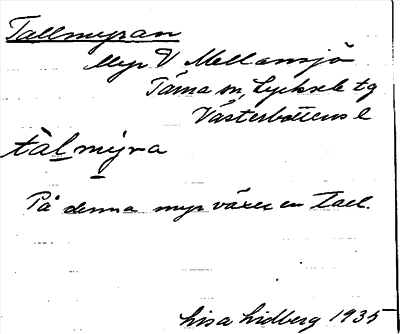 Tallmyran
Myr V Mellansjö
Tärna sn, Lycksele tg
Västerbottens l
tàlmyra
På denna myr växer en tall.
Lisa Lidberg 1935